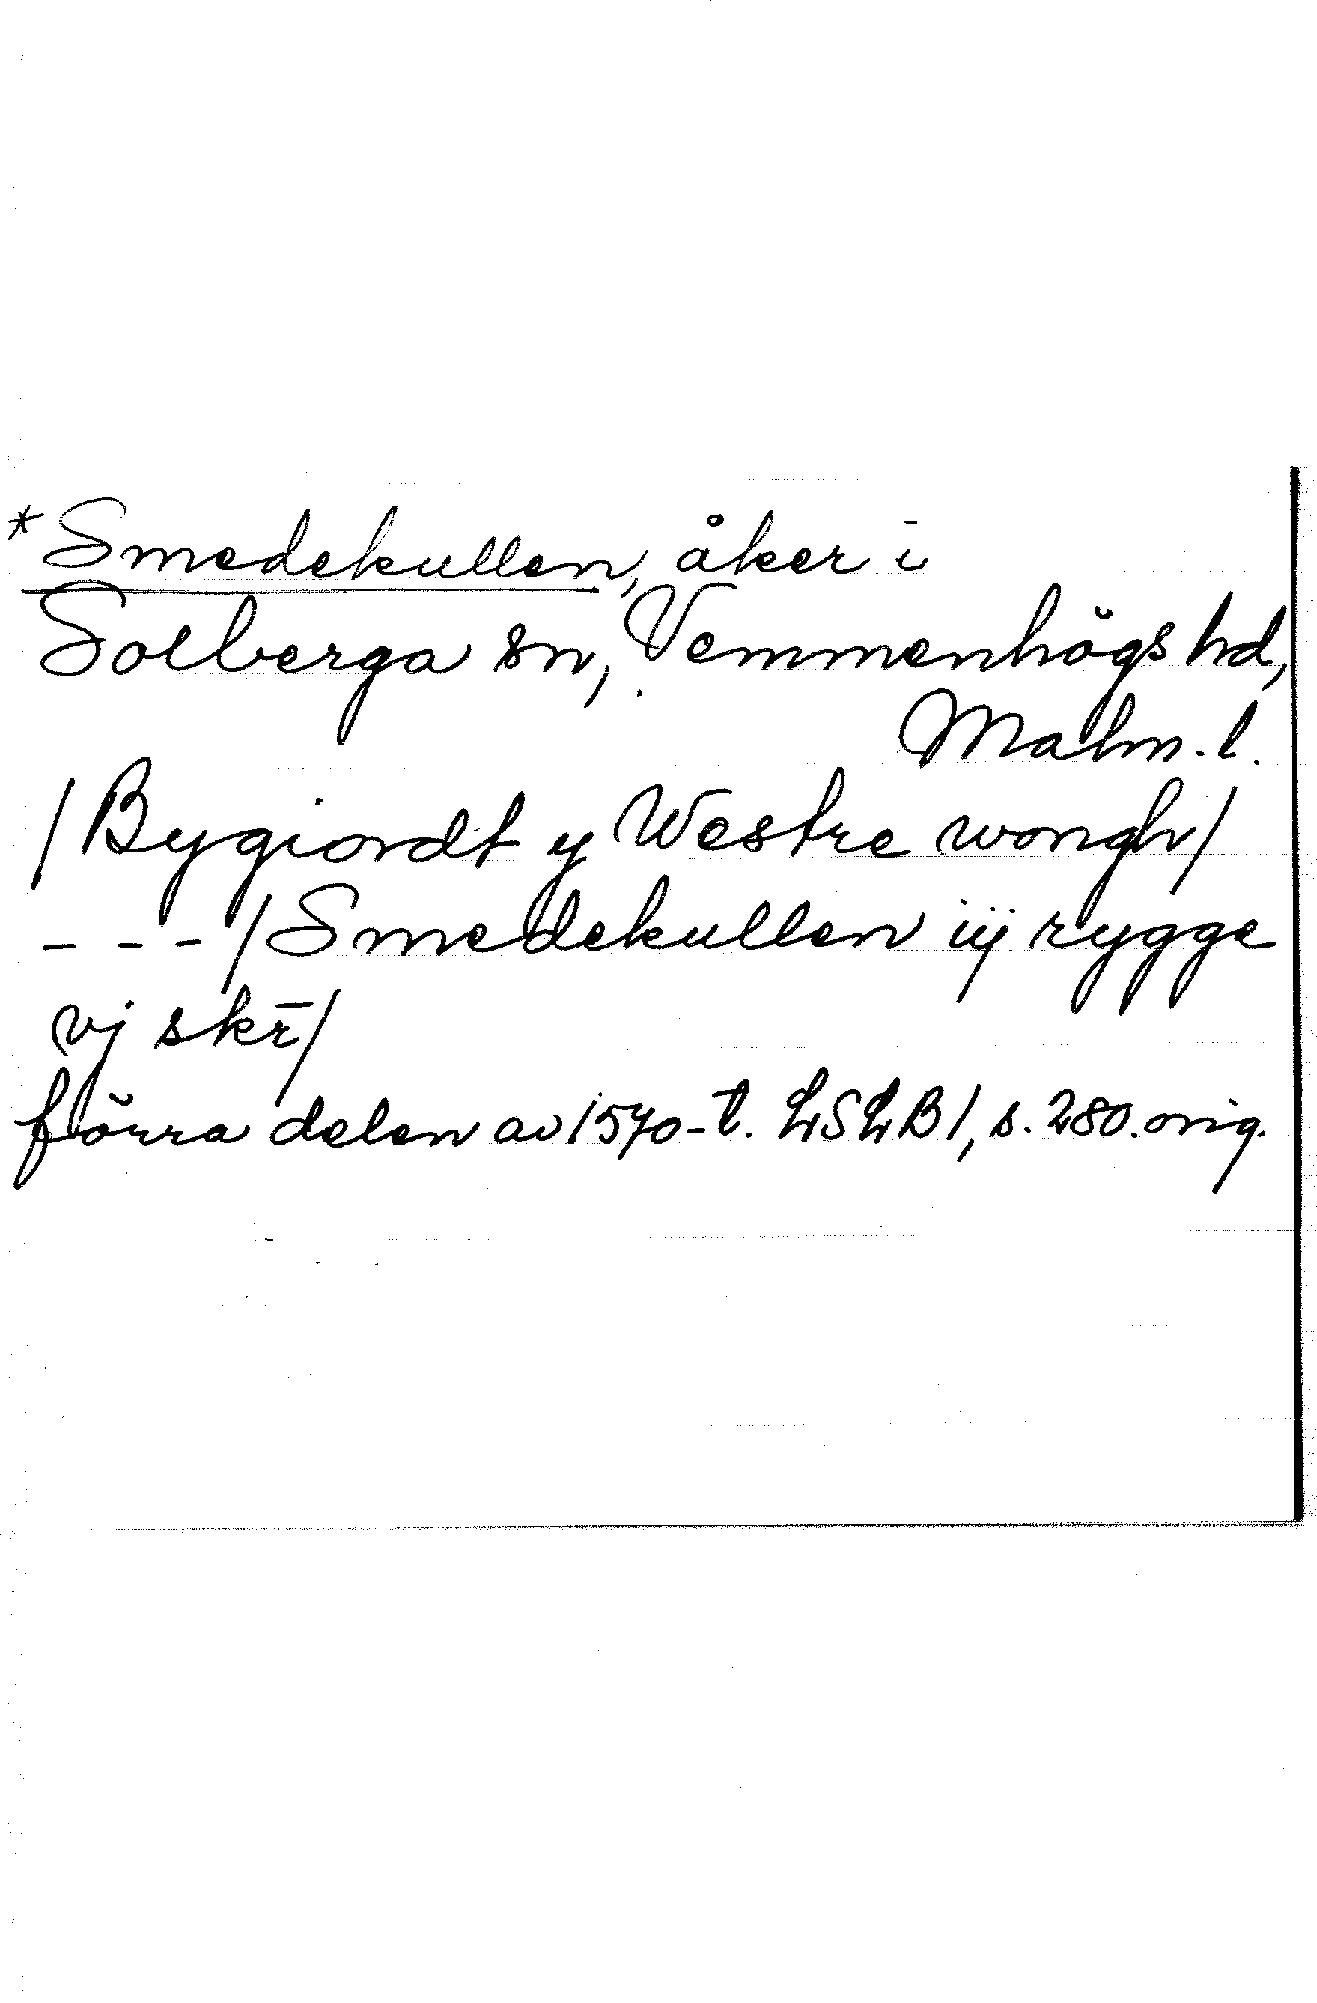 *Smedekullen, åker i
Solberga sn, Vemmenhögs hd,
Malm. l.
/Bygiordt y Westre wongh/
- - - /Smedekullen iij rygge
vj skr̄/
förra delen av 1570-t. LSLB 1, s. 280. orig.